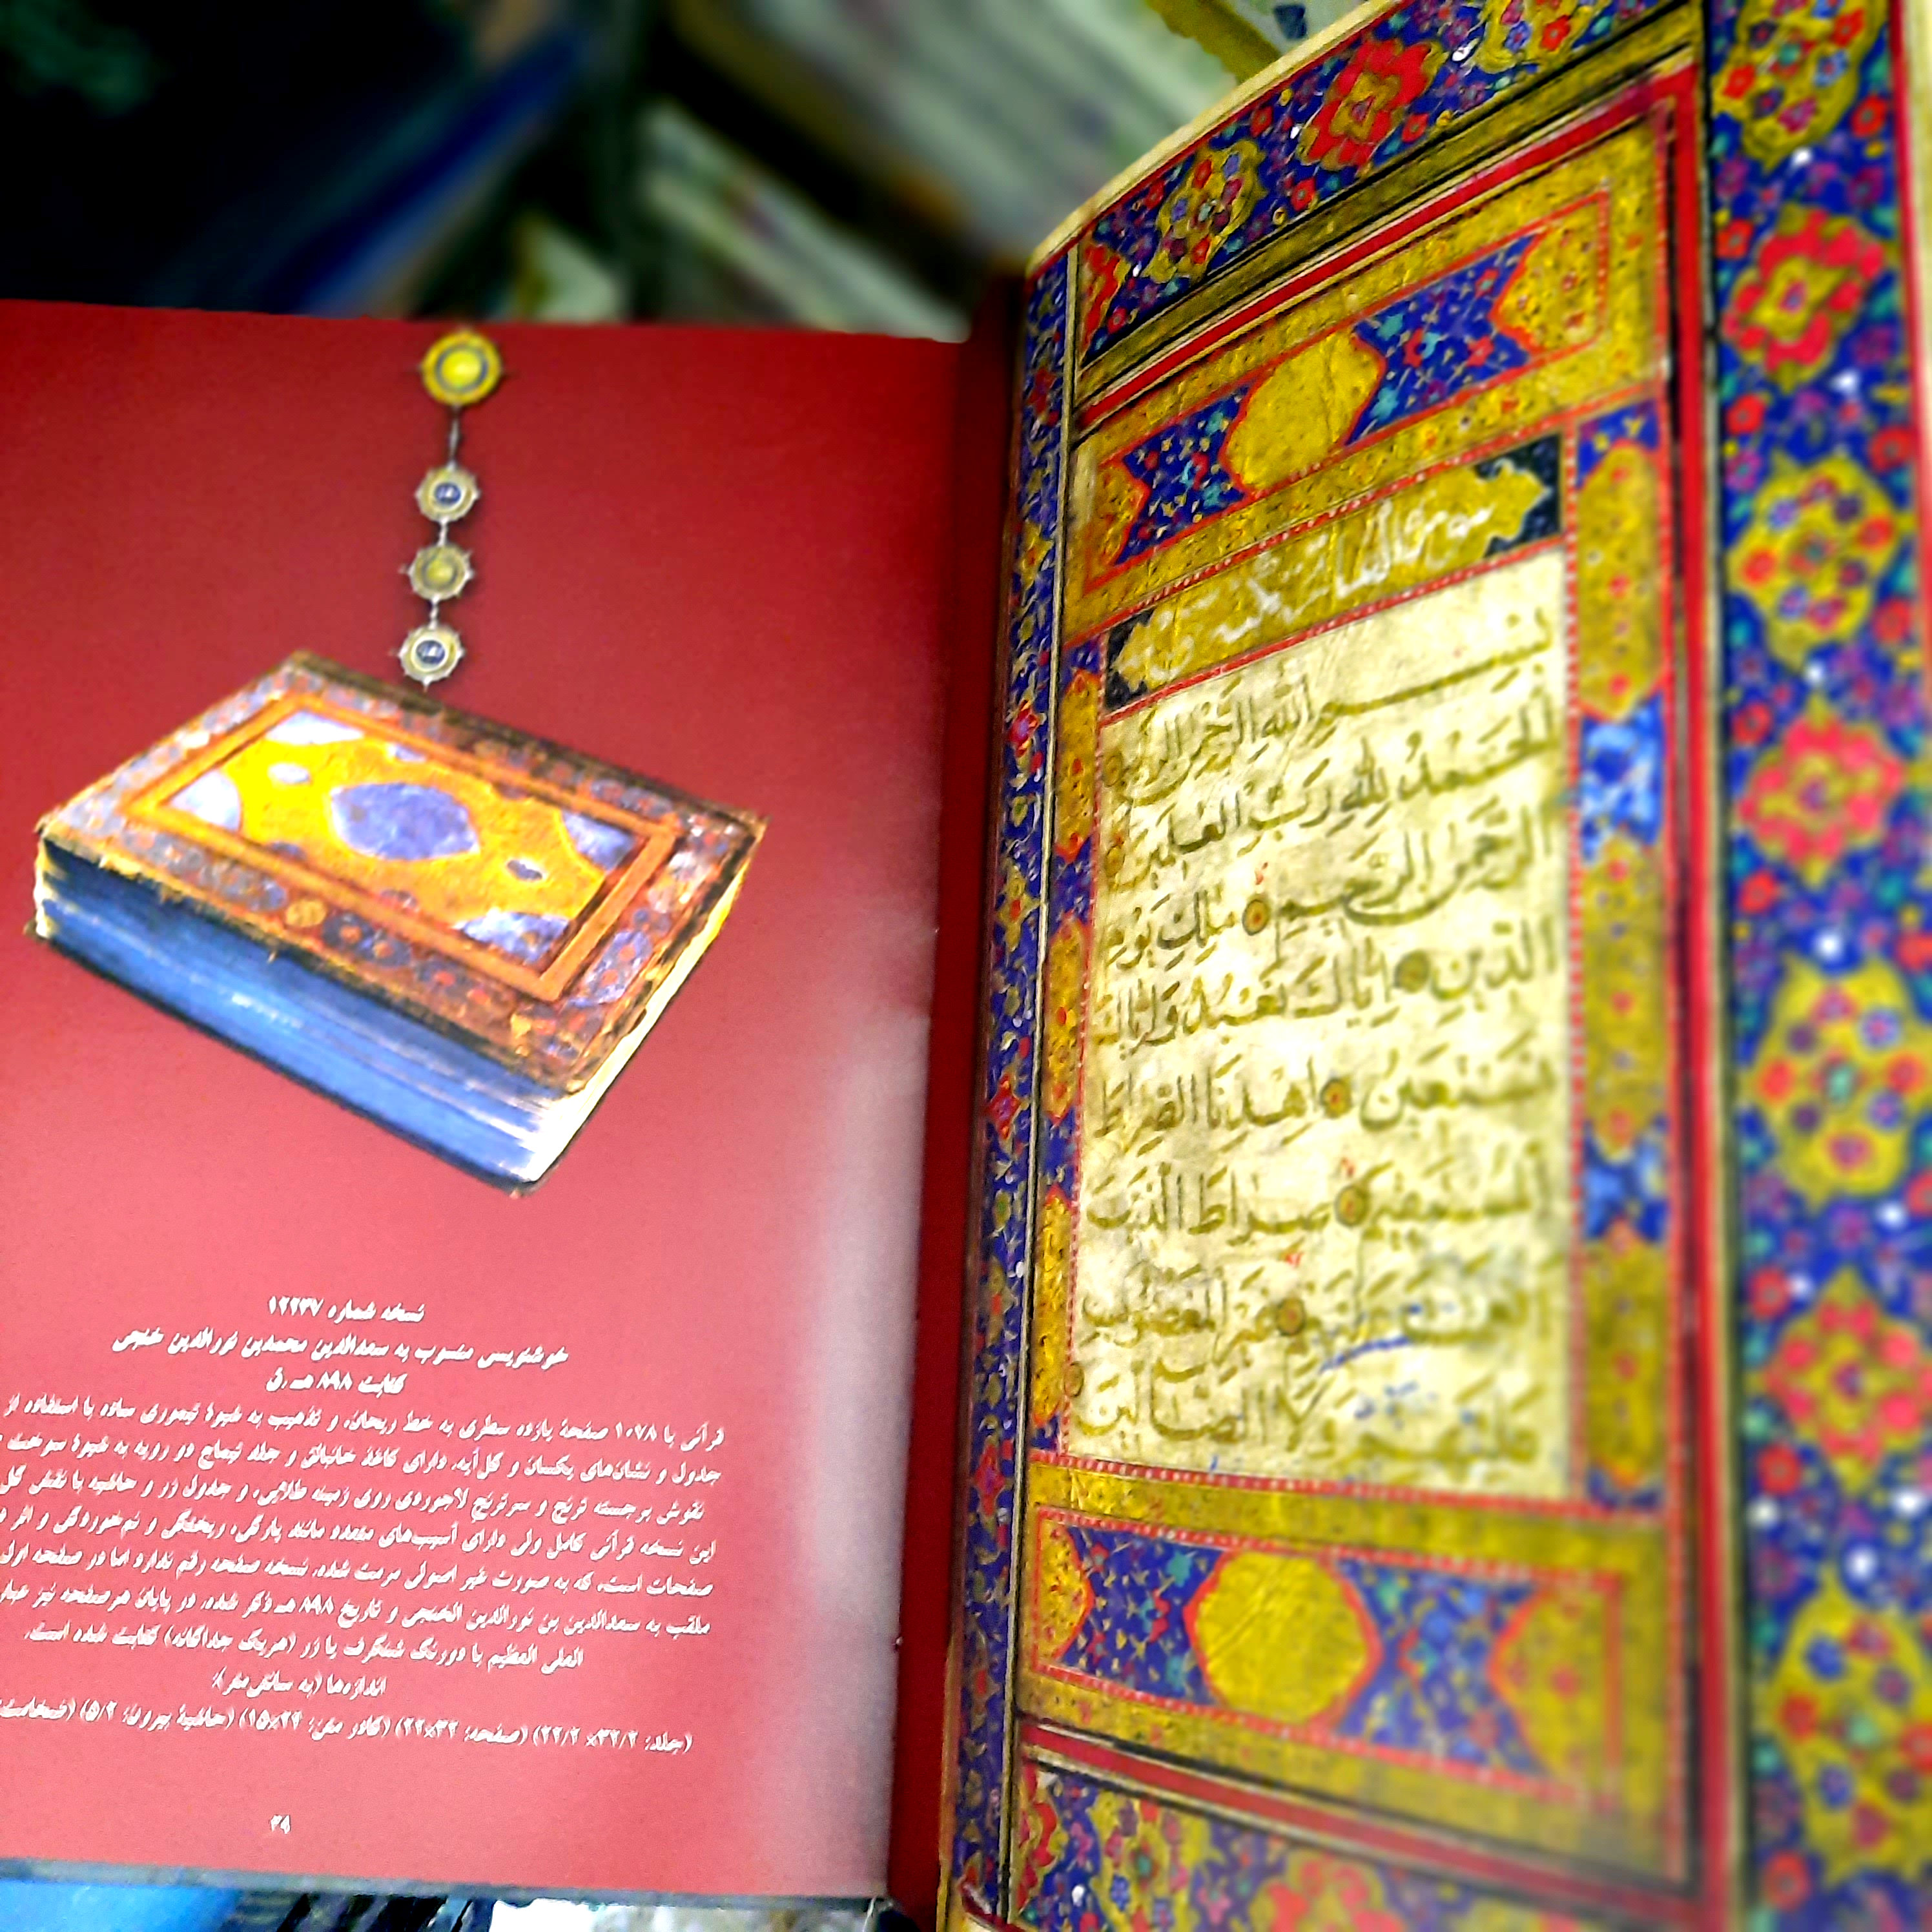 بسم الله الرحمن الرحيم
الحمد لله رب العلمين
الرحمن الرحيم ملك يوم
الدين اياك نعبد واياك
نستعين اهدنا الصراط
المستقيم صراط الذين
انعمت عليهم غير المغضوب
عليهم ولا الضالين
نسخه شماره ۱۲۲۳۷
خوشنویسی منسوب به سعدالدین محمدبن نورالدین خنجی
کتابت ۸۹۸ هـ .ق
قرآنی با ۱۰۷۸ صفحهٔ یازده سطری به خط ریحان، و تذهیب به شیوهٔ تیموری ساده با استفاده از
جدول و نشان‌های یکسان و گل‌آیه، دارای کاغذ خانبالق و جلد تیماج دو رویه به شیوهٔ سوخت
نقوش برجسته ترنج و سرترنج لاجوردی روی زمینه طلایی، و جدول زر و حاشیه با نقش گل
این نسخه قرآنی کامل ولی دارای آسیب‌های متعدد مانند پارگی، ریختگی و نم‌خوردگی و اثر
صفحات است، که به صورت غیر اصولی مرمت شده. نسخه صفحه رقم ندارد اما در صفحه اول
ملقب به سعدالدین بن نورالدین الخنجی و تاریخ ۸۹۸ هـ ذکر شده. در پایان هرصفحه نیز
العلی العظیم با دورنگ شنگرف یا زر (هریک جداگانه) کتابت شده است.
اندازه‌ها (به سانتی‌متر):
(جلد: ۳۲/۲× ۲۲/۲) (صفحه: ۳۲×۲۲) (کادر متن: ۲۴×۱۵) (حاشیهٔ بیرون: ۵/۲) (ضخامت:
۳۸